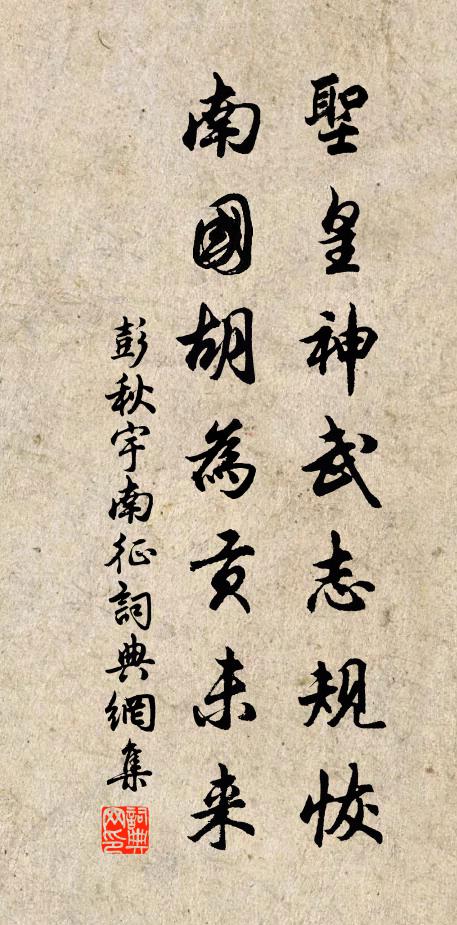 聖皇神武志規恢
南國胡為貢未来
彭秋宇南征詞典網集
詞典网印